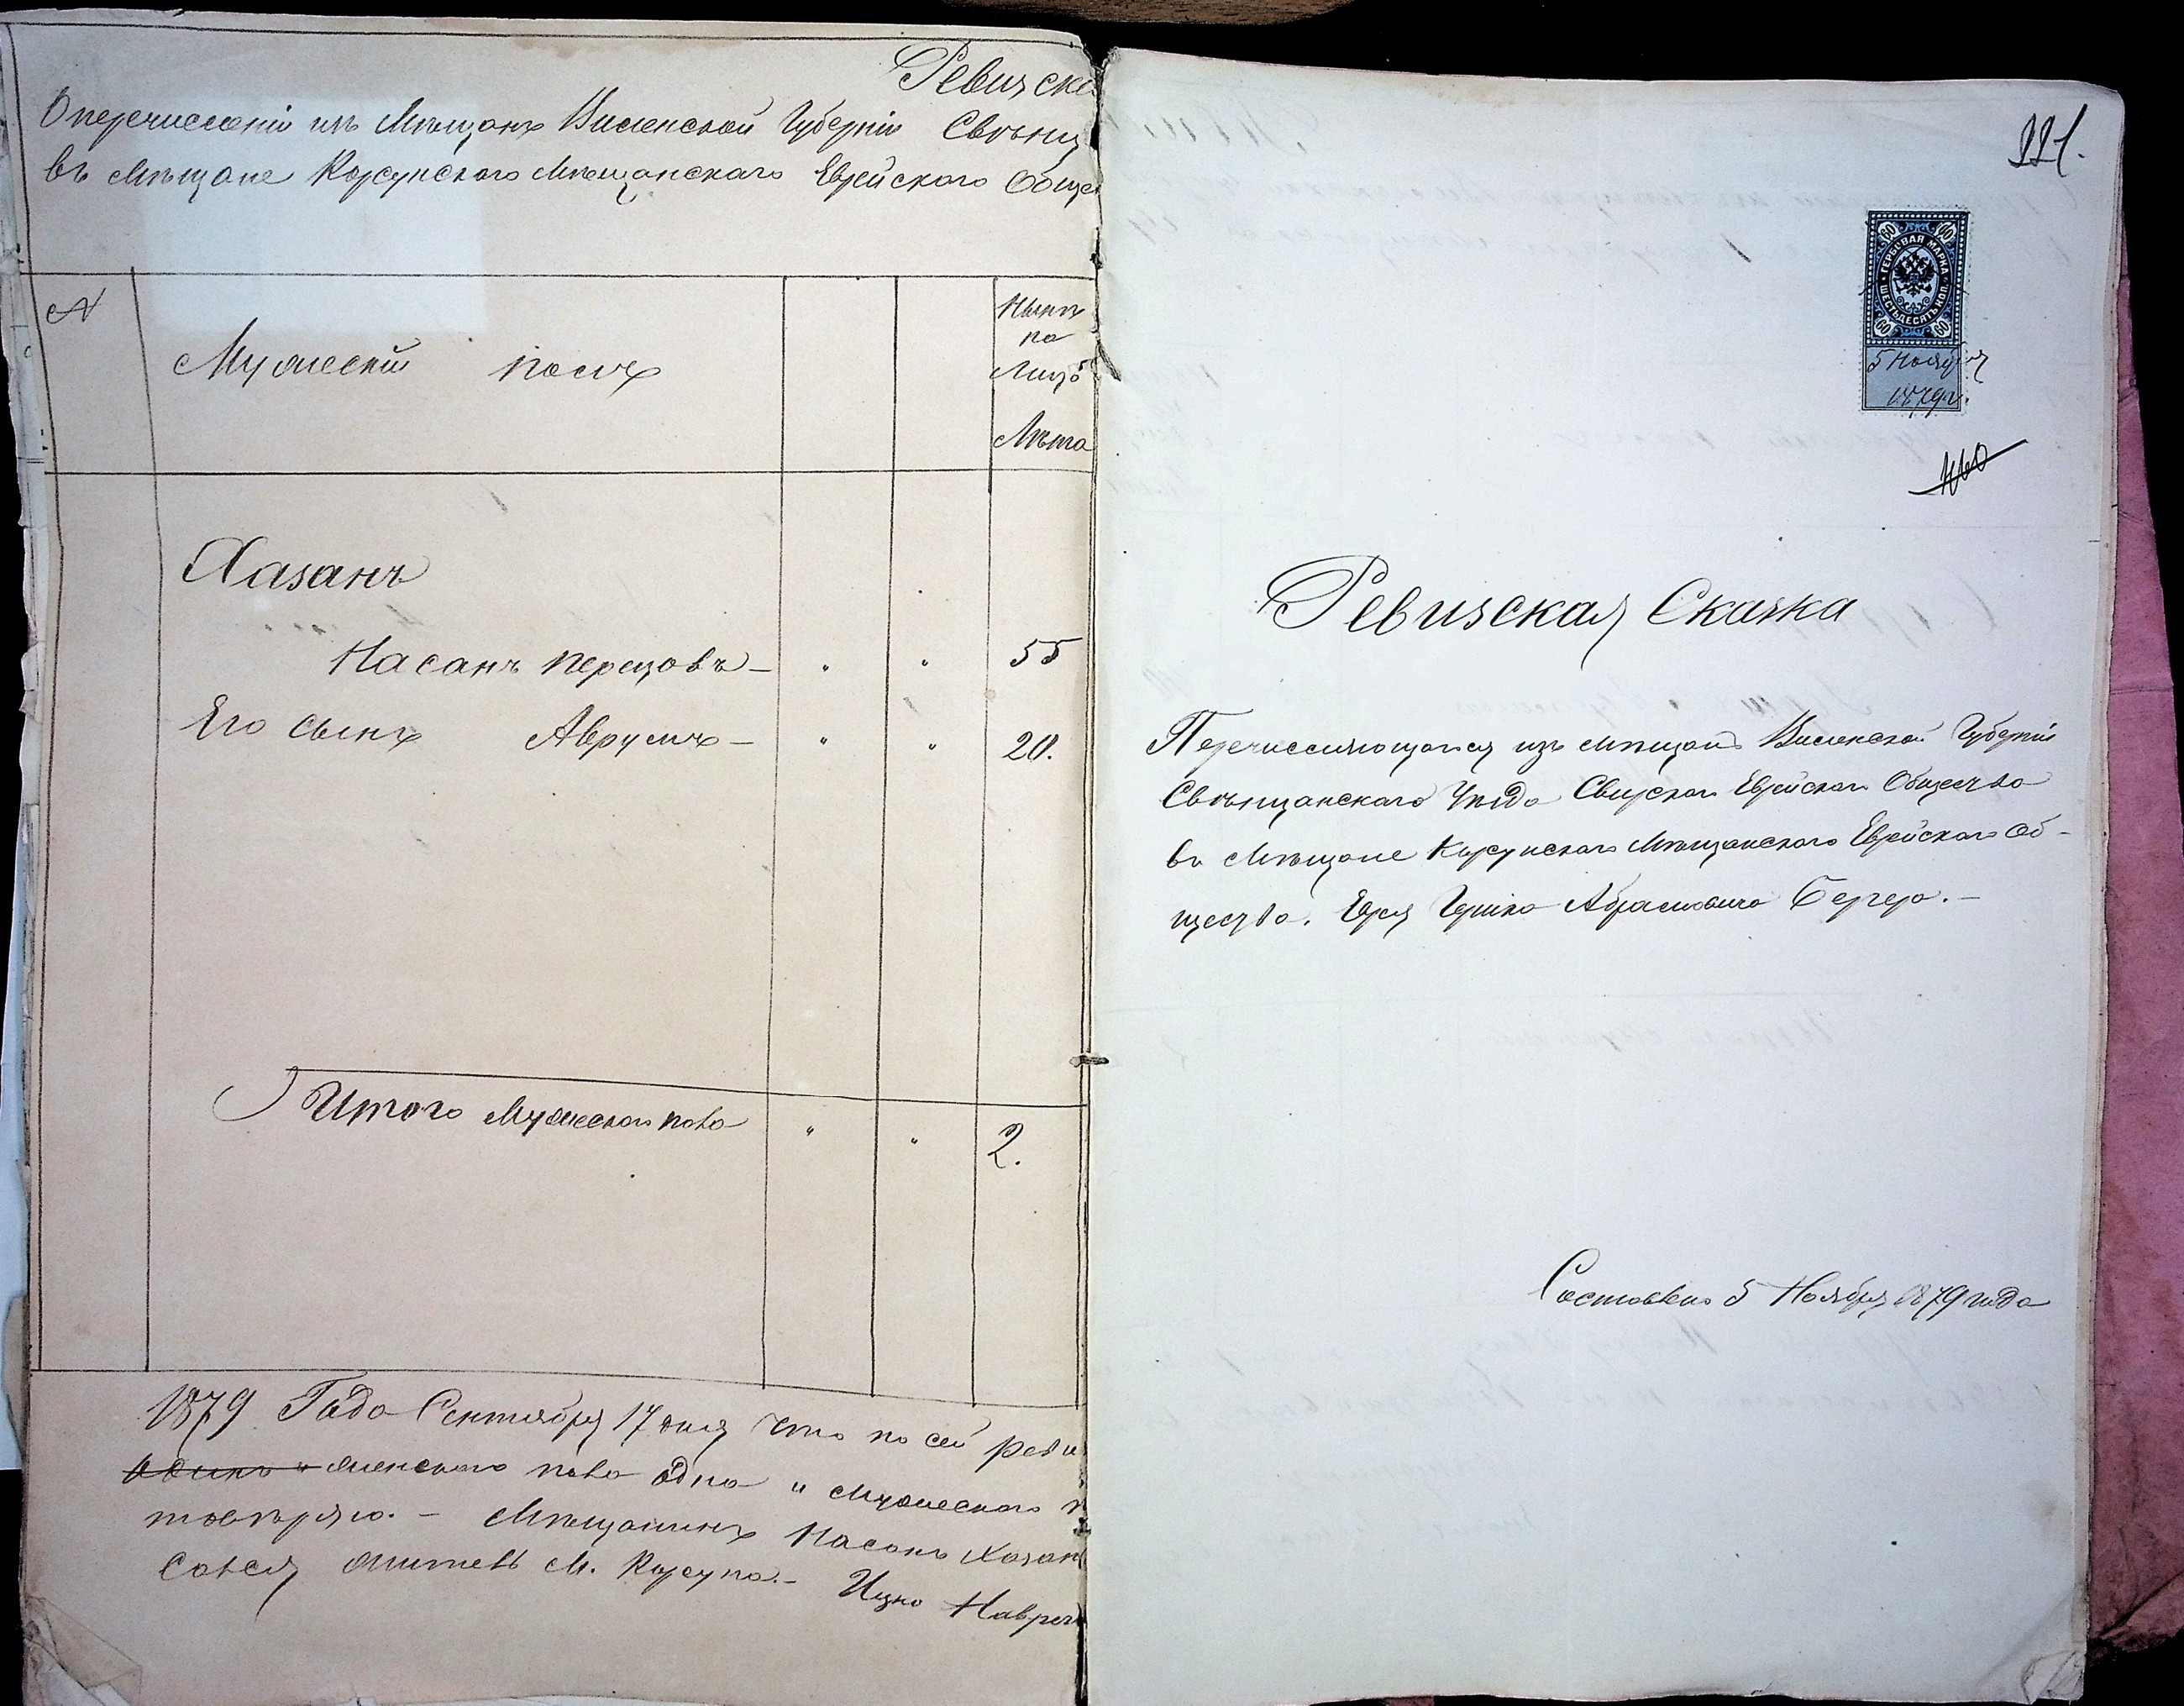 Ревизска
О перечислении изъ Мѣщанъ Виленской Губерніи Свѣнц
въ Мѣщане Корсунского Мѣщанскаго Еврейского Общес
№
Мужескій полъ
Нынѣ
на
Лицо
Лѣта
Хазанъ
Насанъ Перецовъ — " " 55
Его Сынъ Аврумъ — " " 20.
Итого Мужеского пола " " 2.
1879 Года Сентября 17 дня Что по сей реви
одинъ и женского пола одна и Мужеского п
товѣряю. — Мѣщанинъ Насанъ Хазан
житель М. Корсуна. — Ицко
221.
60 60
ГЕРБОВАЯ МАРКА
ШЕСТЬДЕСЯТЪ КОП.
60 60
5 Ноября
1879 г.
Ревизская Сказка
Перечисляющагося изъ мѣщанъ Виленской Губерніи
Свѣнцанскаго Уѣзда Свирскаго Еврейскаго Общества
въ Мѣщане Корсунскаго Мѣщанскаго Еврейскаго Об-
щества. Еврея Гершко Абрамовича Бергера. —
Составлена 5 Ноября 1879 года